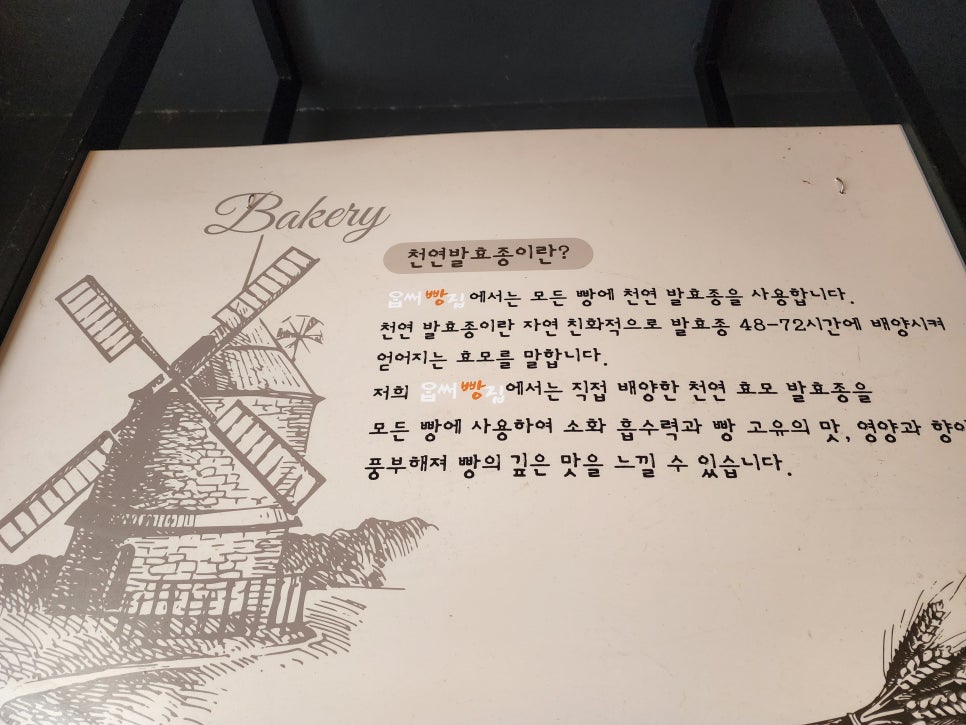 Bakery
천연발효종이란?
욥써빵집에서는 모든 빵에 천연 발효종을 사용합니다.
천연 발효종이란 자연 친화적으로 발효종 48-72시간에 배양시켜
얻어지는 효모를 말합니다.
저희 욥써빵집에서는 직접 배양한 천연 효모 발효종을
모든 빵에 사용하여 소화 흡수력과 빵 고유의 맛, 영양과 향이
풍부해져 빵의 깊은 맛을 느낄 수 있습니다.